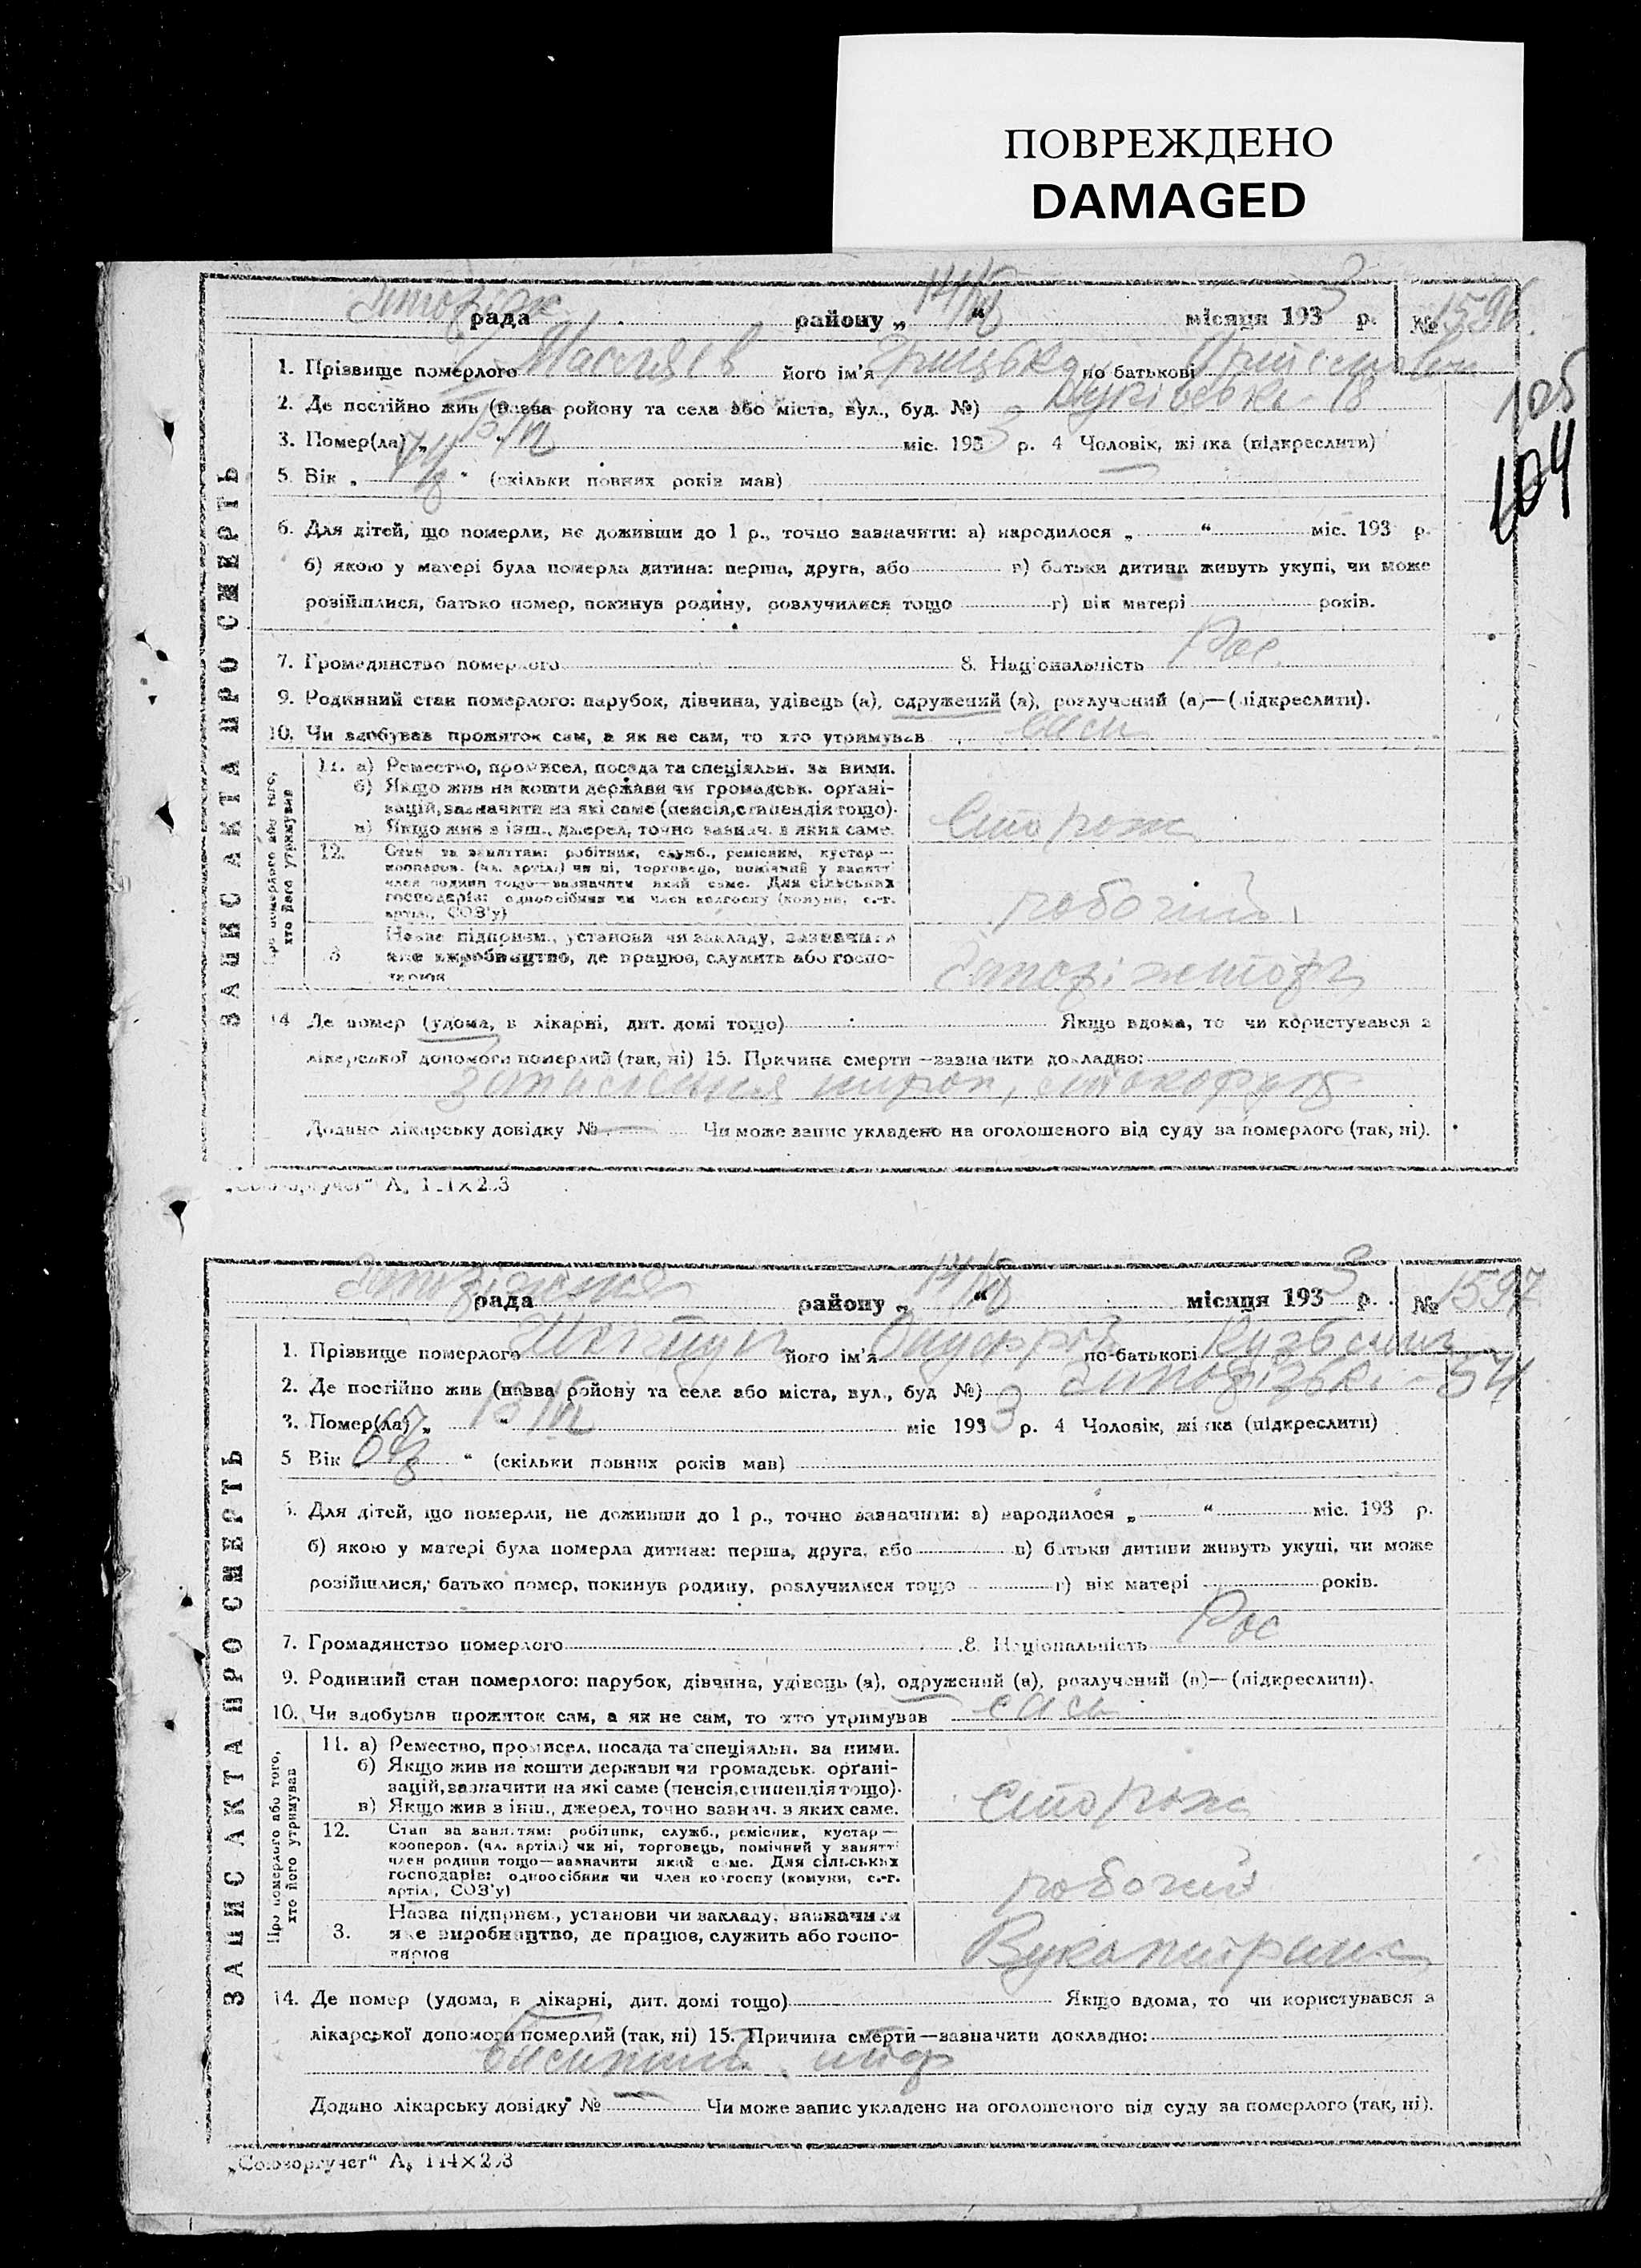 ПОВРЕЖДЕНО
DAMAGED
рада району „ 14/IV “ місяця 1933 р. № 1596
105
104
ЗАПИС АКТА ПРО СМЕРТЬ
1. Прізвище померлого його ім'я Грицько по батькові
2. Де постійно жив (назва району та села або міста, вул., буд. №) 18
3. Помер(ла) „ 13/IV міс. 1933 р. 4 Чоловік, жінка (підкреслити)
5. Вік „ “ (скільки повних років мав)
6. Для дітей, що померли, не доживши до 1 р., точно зазначити: а) народилося „ “ міс. 193 р.
б) якою у матері була померла дитина: перша, друга, або в) батьки дитини живуть укупі, чи може
розійшлися, батько помер, покинув родину, розлучилися тощо г) вік матері років.
7. Громадянство померлого 8. Національність Рос
9. Родинний стан померлого: парубок, дівчина, удівець (а), одружений (а), розлучений (а)—(підкреслити).
10. Чи здобував прожиток сам, а як не сам, то хто утримував сам
Про померлого або того, хто його утримував
11. а) Ремество, промисел, посада та спеціяльн. за ними.
б) Якщо жив на кошти держави чи громадськ. органі-
зацій, зазначити на які саме (пенсія, стипендія тощо).
в) Якщо жив з інш., джерел, точно зазнач. з яких саме.
Сторож
12. Стан за заняттям: робітник, служб., ремісник, кустар—
кооперов. (чл. артілі) чи ні, торговець, помічний у занятті
член родини тощо—зазначити який саме. Для сільських
господарів: одноосібник чи член колгоспу (комуни, с.-г.
артілі, СОЗ'у)
робочий
Назва підприєм., установи чи закладу, зазначити
3 яке виробництво, де працює, служить або госпо-
дарює
14 Де помер (удома, в лікарні, дит. домі тощо) Якщо вдома, то чи користувався з
лікарської допомоги померлий (так, ні) 15. Причина смерти—зазначити докладно:
Додано лікарську довідку № Чи може запис укладено на оголошеного від суду за померлого (так, ні).
„Союзоргучет“
рада району „ 14/IV “ місяця 1933 р. № 1597
ЗАПИС АКТА ПРО СМЕРТЬ
1. Прізвище померлого його ім'я по батькові Кузьмич
2. Де постійно жив (назва району та села або міста, вул., буд №) 54
3. Помер(ла) „ 13/IV міс 1933 р. 4 Чоловік, жінка (підкреслити)
5 Вік “ (скільки повних років мав)
6. Для дітей, що померли, не доживши до 1 р., точно зазначити: а) народилося „ “ міс. 193 р.
б) якою у матері була померла дитина: перша, друга, або в) батьки дитини живуть укупі, чи може
розійшлися, батько помер, покинув родину, розлучилися тощо г) вік матері років.
7. Громадянство померлого 8. Національність Рос
9. Родинний стан померлого: парубок, дівчина, удівець (а), одружений (а), розлучений (а)—(підкреслити).
10. Чи здобував прожиток сам, а як не сам, то хто утримував сам
Про померлого або того, хто його утримував
11. а) Ремество, промисел, посада та спеціяльн. за ними.
б) Якщо жив на кошти держави чи громадськ. органі-
зацій, зазначити на які саме (пенсія, стипендія тощо).
в) Якщо жив з інш., джерел, точно зазнач. з яких саме.
Сторож
12. Стан за заняттям: робітник, служб., ремісник, кустар—
кооперов. (чл. артілі) чи ні, торговець, помічний у занятті
член родини тощо—зазначити який саме. Для сільських
господарів: одноосібник чи член колгоспу (комуни, с.-г.
артілі, СОЗ'у)
робочий
Назва підприєм., установи чи закладу, зазначити
3. яке виробництво, де працює, служить або госпо-
дарює
14. Де помер (удома, в лікарні, дит. домі тощо) Якщо вдома, то чи користувався з
лікарської допомоги померлий (так, ні) 15. Причина смерти—зазначити докладно:
Додано лікарську довідку № Чи може запис укладено на оголошеного від суду за померлого (так, ні).
„Союзоргучет“